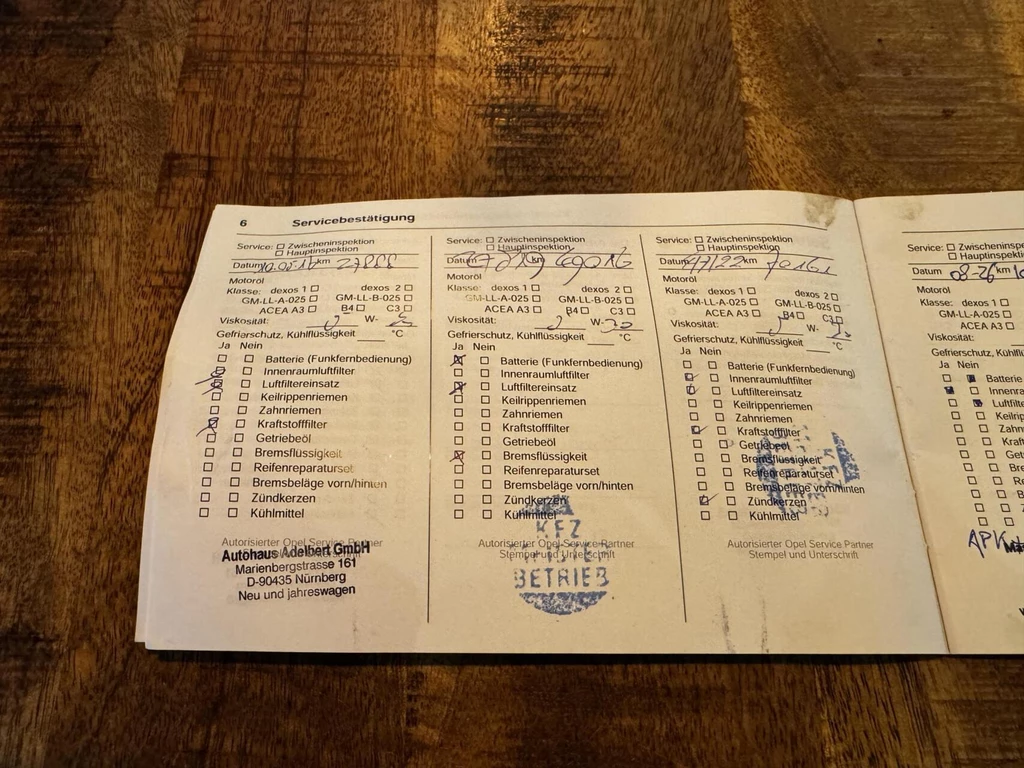 6 Servicebestätigung
Service: Zwischeninspektion
Hauptinspektion
Datum km 27888
Motoröl
Klasse: dexos 1 dexos 2
GM-LL-A-025 GM-LL-B-025
ACEA A3 B4 C3
Viskosität: W-
Gefrierschutz, Kühlflüssigkeit °C
Ja Nein
Batterie (Funkfernbedienung)
Innenraumluftfilter
Luftfiltereinsatz
Keilrippenriemen
Zahnriemen
Kraftstofffilter
Getriebeöl
Bremsflüssigkeit
Reifenreparaturset
Bremsbeläge vorn/hinten
Zündkerzen
Kühlmittel
Autorisierter Opel Service Partner
Autohaus Adelbert GmbH
Marienbergstrasse 161
D-90435 Nürnberg
Neu und jahreswagen
Service: Zwischeninspektion
Hauptinspektion
Datum km
Motoröl
Klasse: dexos 1 dexos 2
GM-LL-A-025 GM-LL-B-025
ACEA A3 B4 C3
Viskosität: W-
Gefrierschutz, Kühlflüssigkeit °C
Ja Nein
Batterie (Funkfernbedienung)
Innenraumluftfilter
Luftfiltereinsatz
Keilrippenriemen
Zahnriemen
Kraftstofffilter
Getriebeöl
Bremsflüssigkeit
Reifenreparaturset
Bremsbeläge vorn/hinten
Zündkerzen
Kühlmittel
Autorisierter Opel Service Partner
Stempel und Unterschrift
KFZ
BETRIEB
Service: Zwischeninspektion
Hauptinspektion
Datum km
Motoröl
Klasse: dexos 1 dexos 2
GM-LL-A-025 GM-LL-B-025
ACEA A3 B4 C3
Viskosität: W-
Gefrierschutz, Kühlflüssigkeit °C
Ja Nein
Batterie (Funkfernbedienung)
Innenraumluftfilter
Luftfiltereinsatz
Keilrippenriemen
Zahnriemen
Kraftstofffilter
Getriebeöl
Bremsflüssigkeit
Reifenreparaturset
Bremsbeläge vorn/hinten
Zündkerzen
Kühlmittel
Autorisierter Opel Service Partner
Stempel und Unterschrift
Service: Zwischeninspe
Hauptinspekti
Datum 08-26 km
Motoröl
Klasse: dexos 1
GM-LL-A-025
ACEA A3
Viskosität:
Gefrierschutz, Kühlflüss
Ja Nein
Batterie
Innenra
Luftfilte
Keilrip
Zahn
Kraf
Get
Br
Re
APK